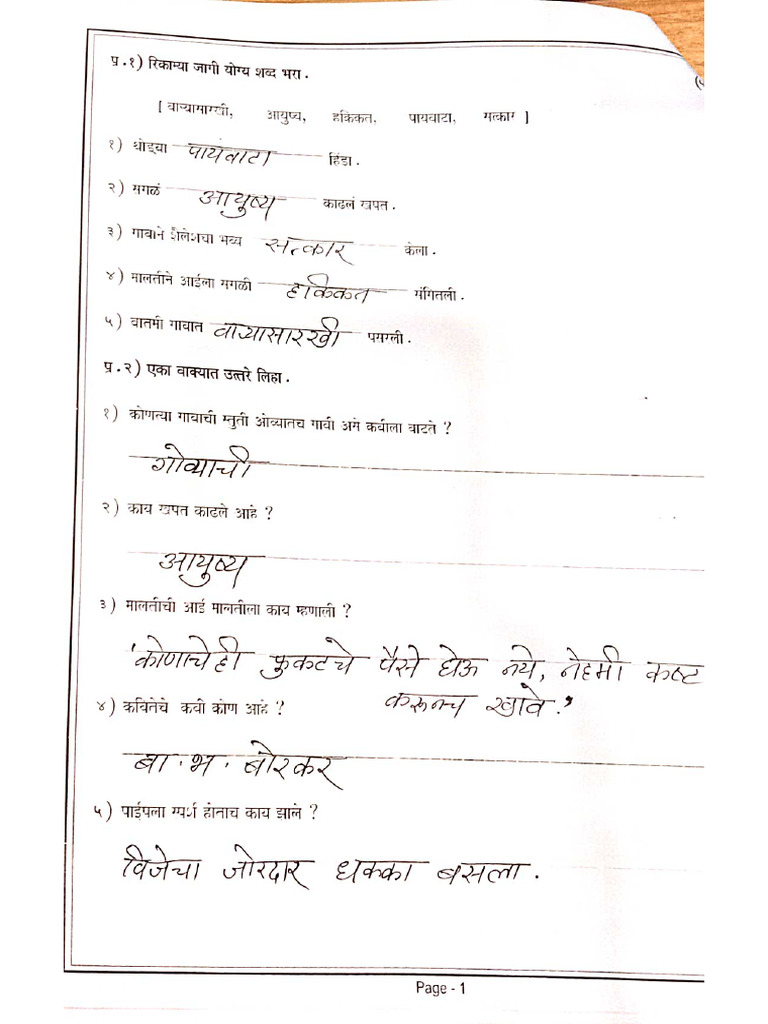 प्र.१) रिकाम्या जागी योग्य शब्द भरा.
[ वाऱ्यासारखी, आयुष्य, हकिकत, पायवाटा, सत्कार ]
१) थोड्या पायवाटा हिंडा.
२) सगळं आयुष्य काढलं खपत.
३) गावाने शैलेशचा भव्य सत्कार केला.
४) मालतीने आईला सगळी हकिकत सांगितली.
५) बातमी गावात वाऱ्यासारखी पसरली.
प्र.२) एका वाक्यात उत्तरे लिहा.
१) कोणत्या गावाची स्तुती ओव्यातच गावी असे कवीला वाटते ?
गोव्याची
२) काय खपत काढले आहे ?
आयुष्य
३) मालतीची आई मालतीला काय म्हणाली ?
'कोणाचेही फुकटचे पैसे घेऊ नये, नेहमी कष्ट
करूनच खावे.'
४) कवितेचे कवी कोण आहे ?
बा.भ. बोरकर
५) पाईपला स्पर्श होताच काय झाले ?
विजेचा जोरदार धक्का बसला.
Page - 1